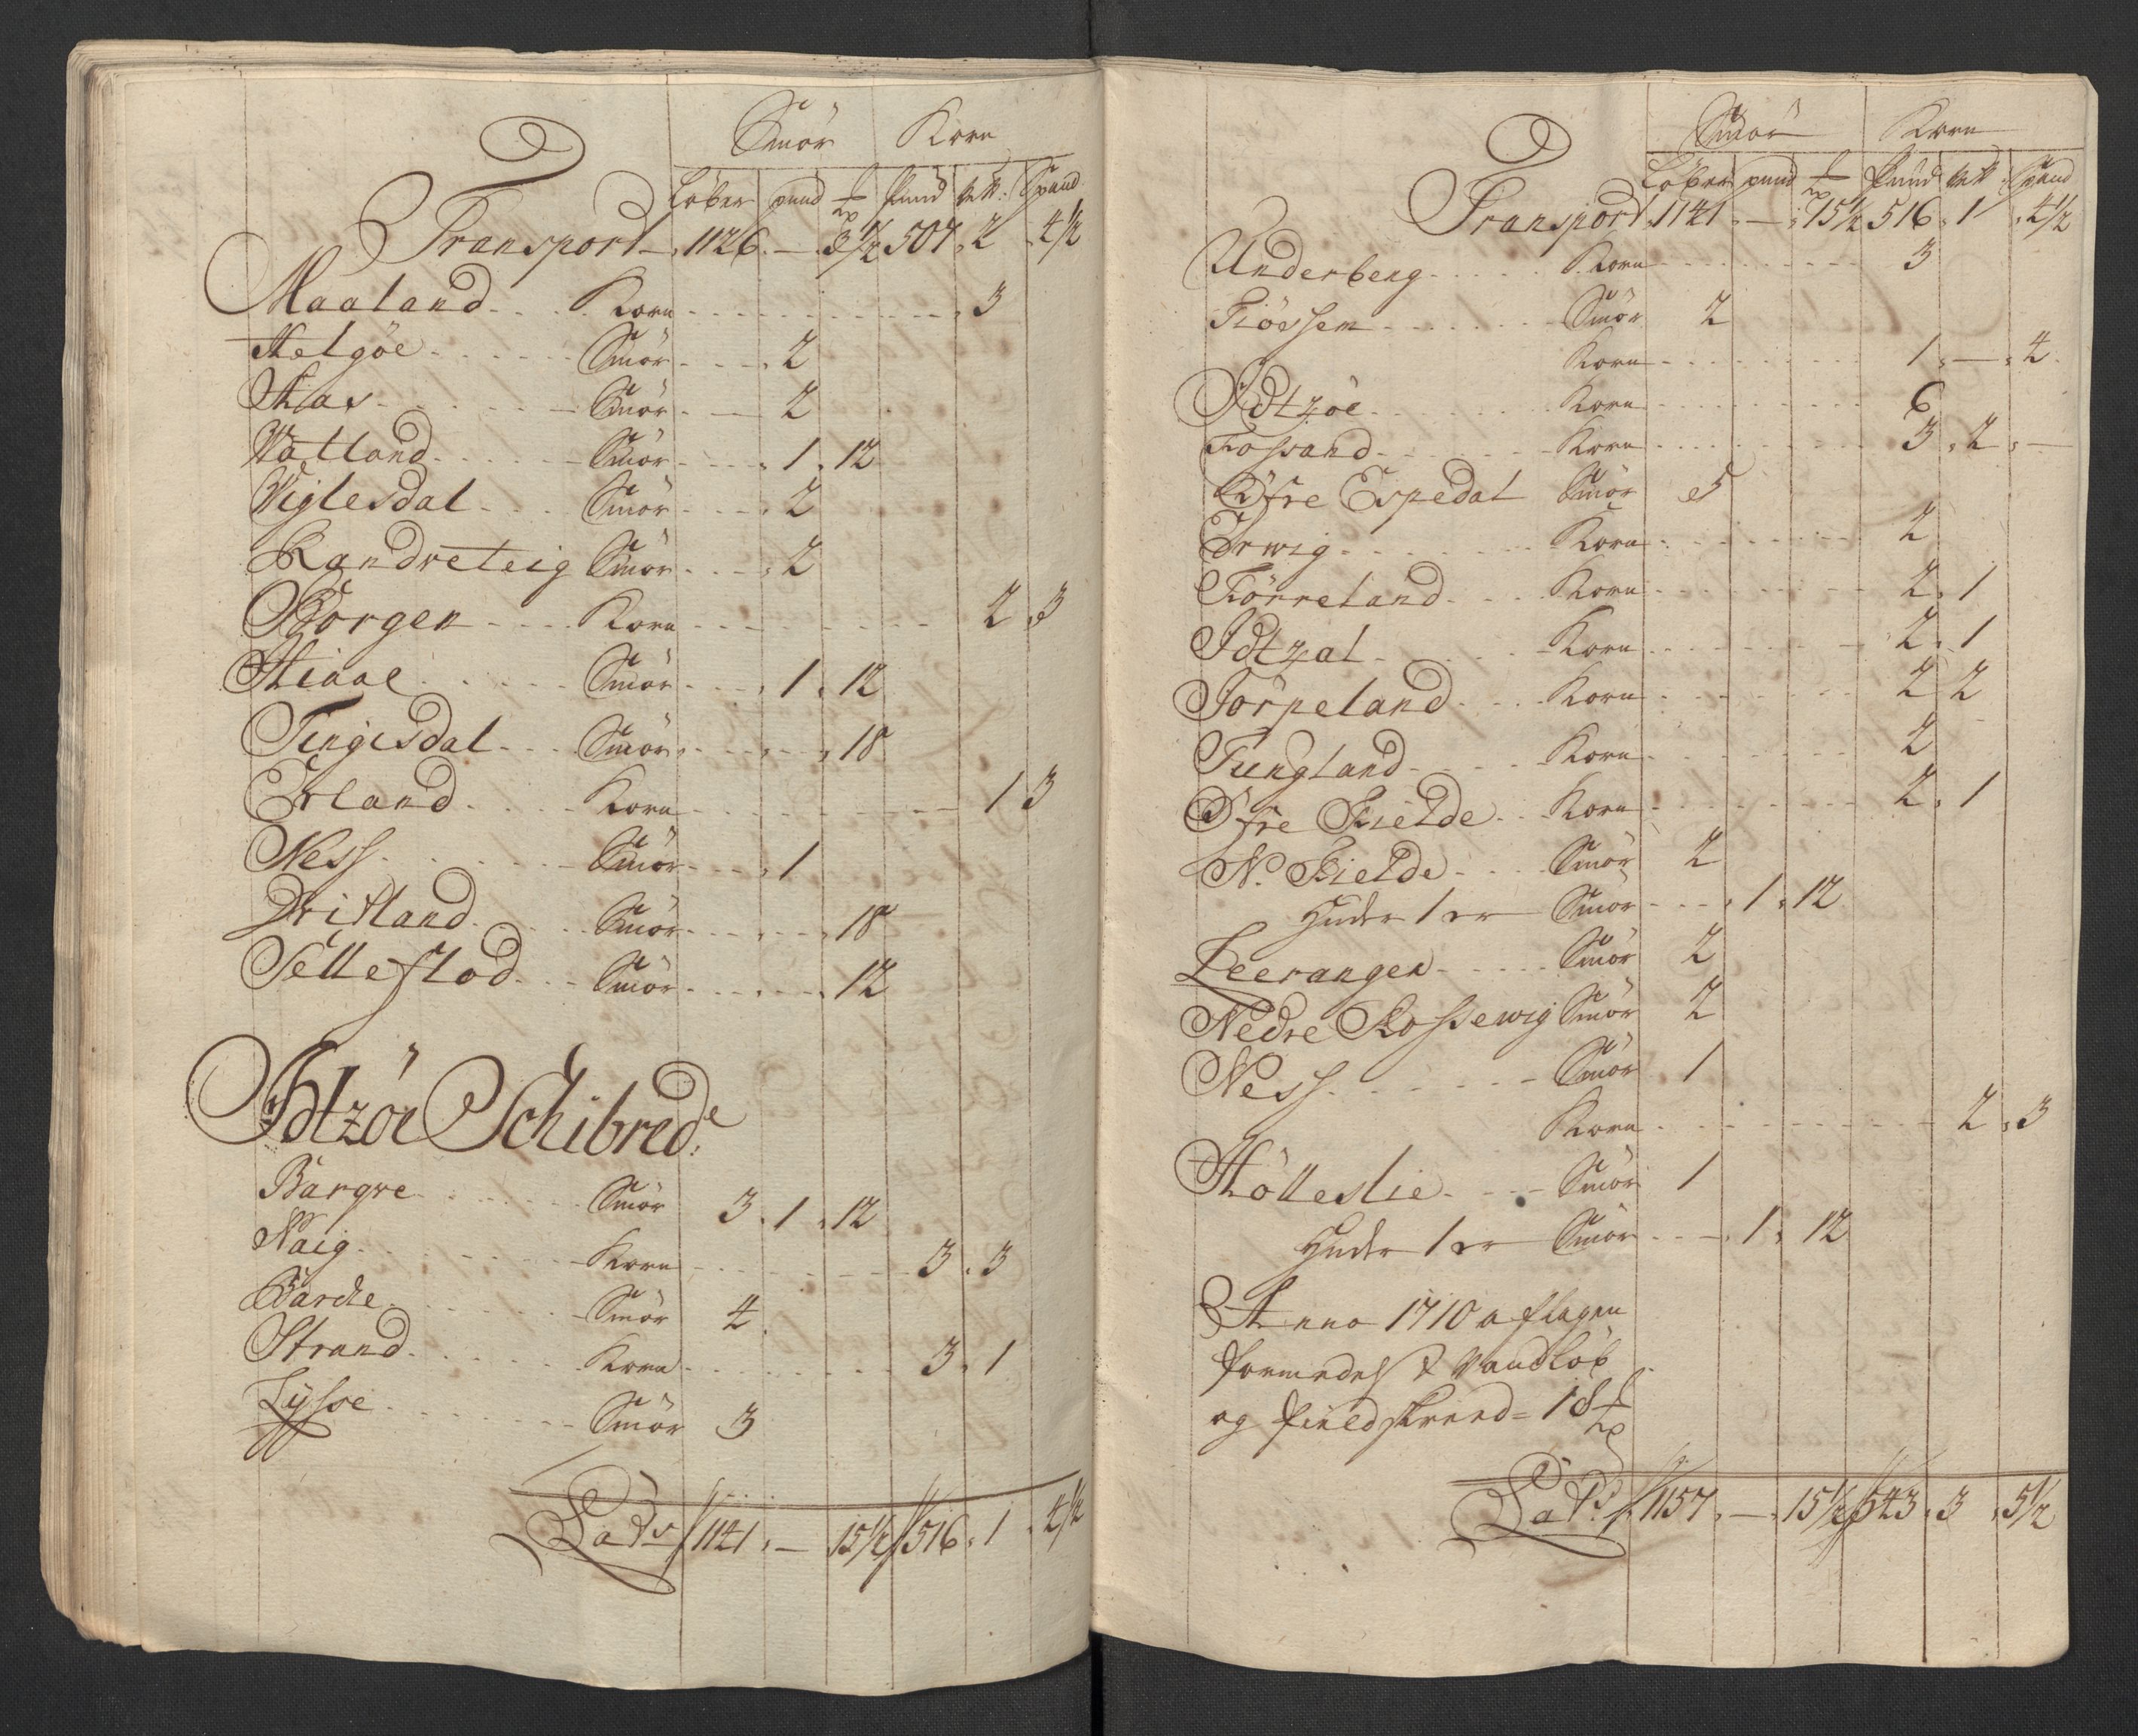 Smör Korn
Løber pund ℔ Pund Vett: Spand
Transport 1126 — 3½ 507 2 4½
Maaland Korn 3
Helgöe Smör 2
Aas Smör 2
Vatland Smör 1 12
Viglesdal Smör 2
Randreteig Smör 2
Borgen Korn 2 3
Hiaae Smör 1 12
Tingisdal Smör 18
Erland Korn 1 3
Ness Smör 1
Britland Smör 18
Tellestod Smör 12
Idtzöe Schibrede
Bargve Smör 3 1 12
Naig Korn 3 3
Barche Smör 4
Strand Korn 3 1
Lysse Smör 3
Lats 1141 — 15½ 516 1 4½
Smör Korn
Løber pund ℔ Pund Vett Spand
Transport 1141 — 15½ 516 1 4½
Underberg Korn 3
Fiössem Smör 2
Korn 1 — 4
Idtzöe Korn 6
Fossand Korn 3 2 —
Öfre Espedal Smör 5
Erwig Korn 2
Tiörreland Korn 2 1
Idtzal Korn 2 1
Jörpeland Korn 2 2
Tungland Korn 2
Öfre Fielde Korn 2 1
N. Fielde Smör 2
Huder 1 er Smör 1 12
Leerangen Smör 2
Nedre Kossewig Smör 2
Ness Smör 1
Korn 2 3
Hölleslie Smör 1
Huder 1 er Smör 1 12
Anno 1710 aflagen
formedelst Vandløb
og fieldskreed = 18 ℔
Lats 1157 — 15½ 543 3 5½